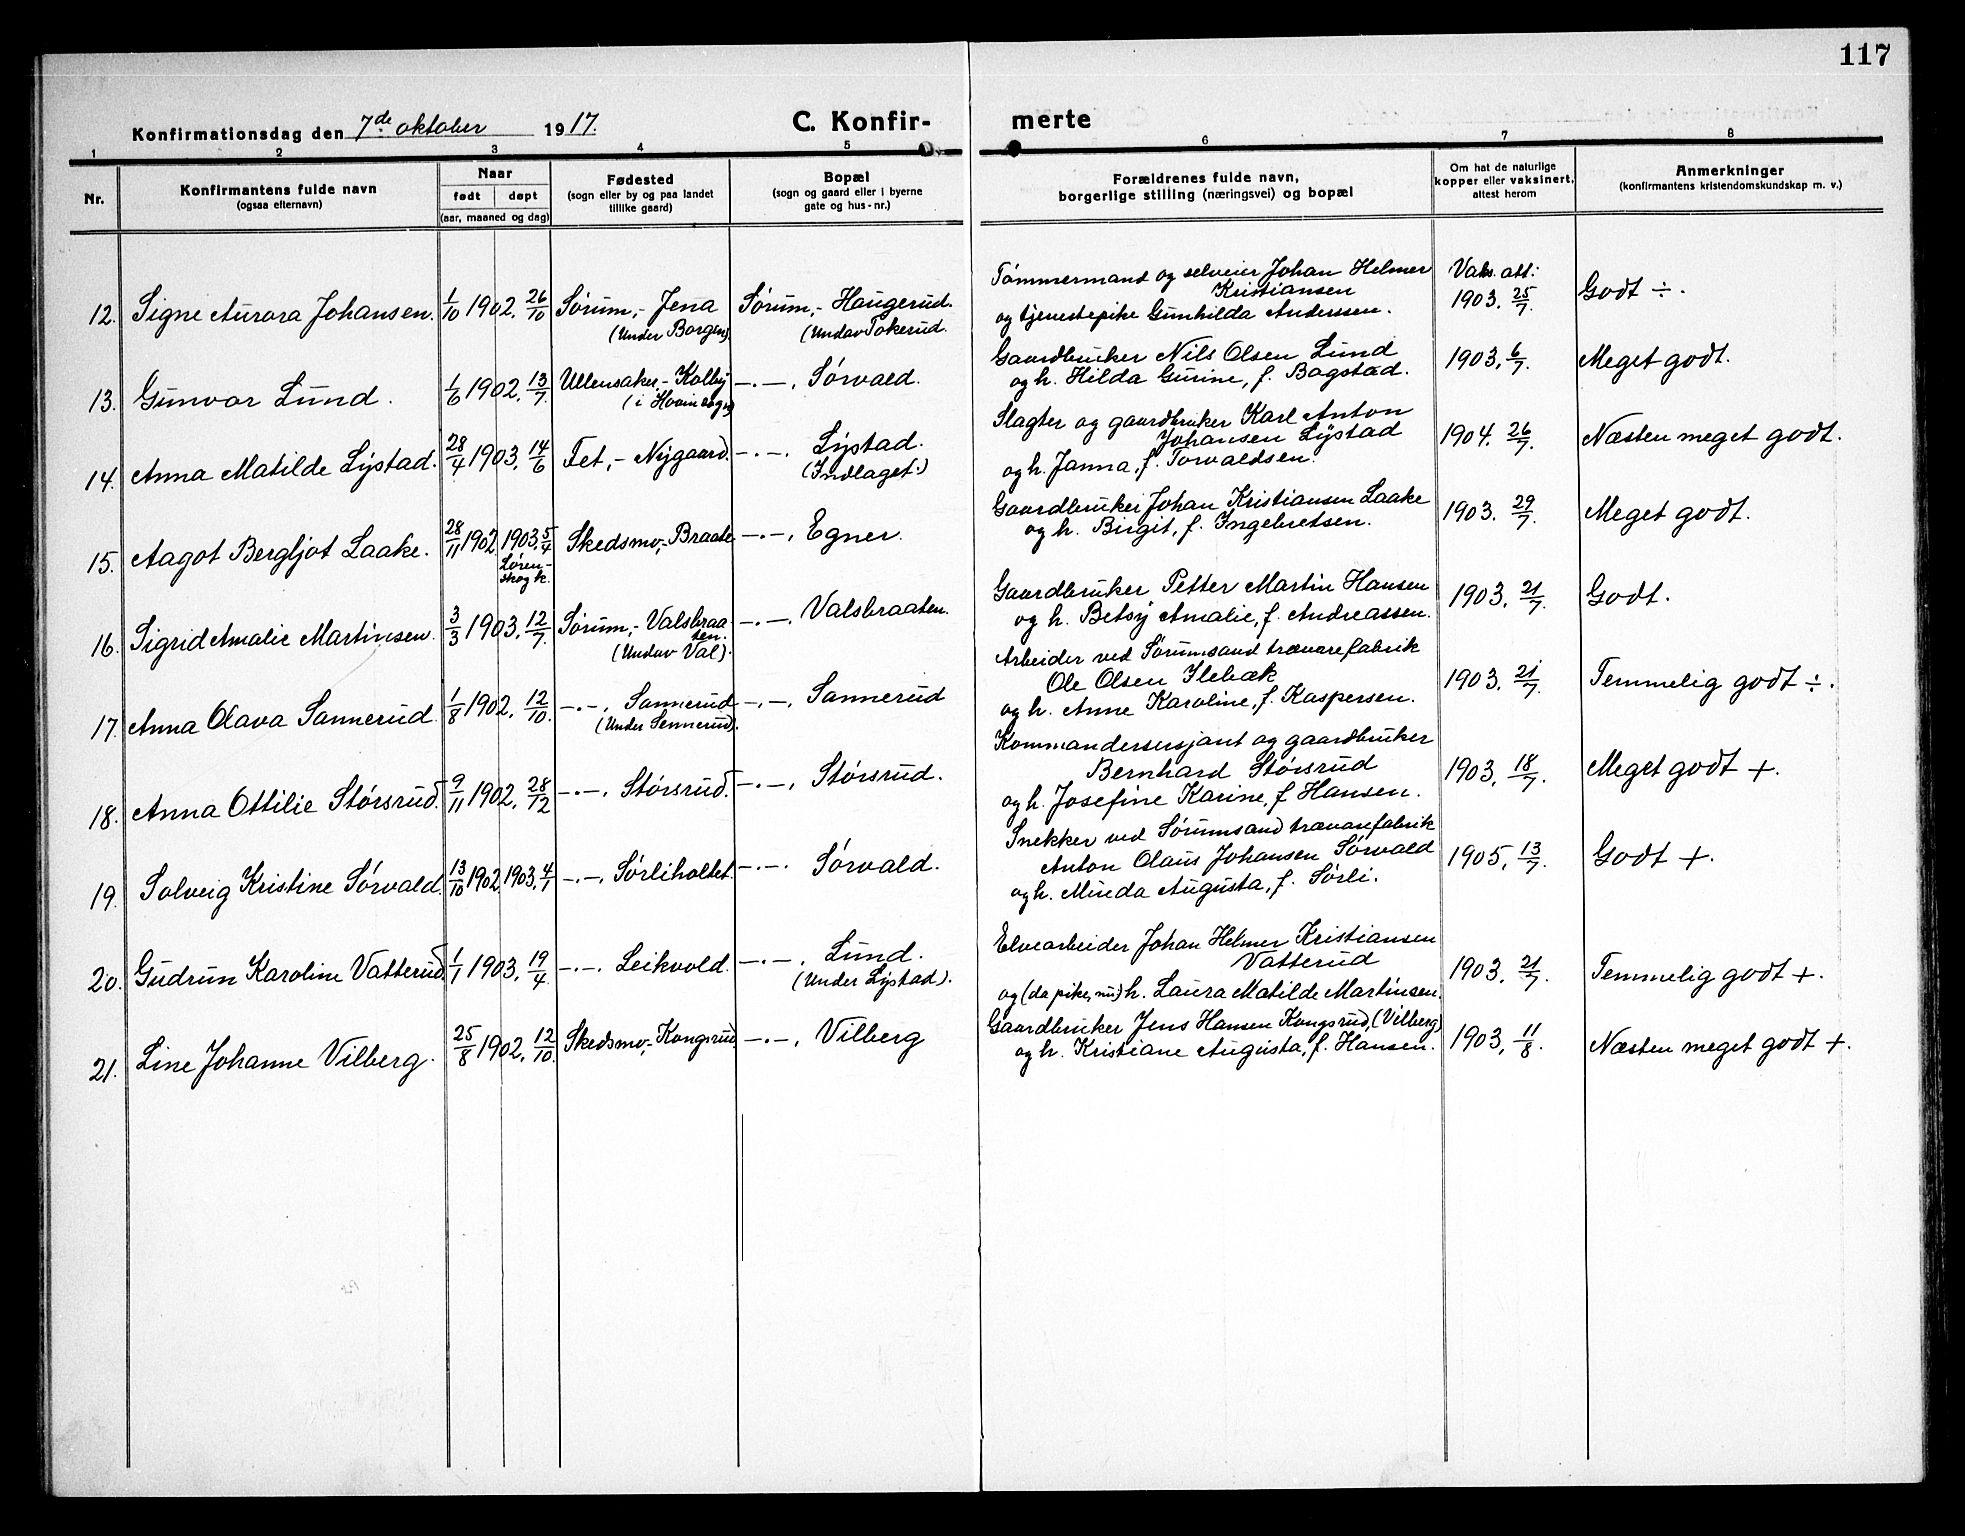 117
Konfirmationsdag den 7de oktober 1917. C. Konfirmerte
1 2 3 4 5 6 7 8
Nr.
Konfirmantens fulde navn
(ogsaa efternavn)
Naar
født døpt
(aar, maaned og dag)
Fødested
(sogn eller by og paa landet
tillike gaard)
Bopæl
(sogn og gaard eller i byerne
gate og hus-nr.)
Forældrenes fulde navn,
borgerlige stilling (næringsvei) og bopæl
Om hat de naturlige
kopper eller vaksinert,
attest herom
Anmerkninger
(konfirmantens kristendomskundskap m. v.)
12. Signe Aurora Johansen. 1/10 1902. 26/10 Sørum,- Jena
(Under Borgen)
Sørum,- Haugerud.
(Undav Tokerud.
Tømmermand og selveier Johan Helmer
Kristiansen
og tjenestepike Gunhilda Anderssen.
Vaks. att:
1903. 25/7.
Godt ÷.
13. Gunvor Lund. 1/6 1902. 13/7. Ullensaker,- Kolby
(i Hovin sogn)
-·-, Sørvald.
Gaardbruker Nils Olsen Lund
og h. Hilda Gurine, f. Bogstad.
1903. 6/7.
Meget godt.
14. Anna Matilde Lystad. 28/4 1903. 14/6 Fet,- Nygaard. -·-, Lystad.
(Indlaget.)
Slagter og gaardbruker Karl Anton
Johansen Lystad
og h. Janna, f. Torvaldsen.
1904. 26/7.
Næsten meget godt.
15. Aagot Bergljot Laake. 28/11 1902 1903. 5/4
Lørenskog k.
Skedsmo,- Braate -·-, Egner.
Gaardbruker Johan Kristiansen Laake
og h. Birgit, f. Ingebretsen.
1903. 29/7.
Meget godt.
16. Sigrid Amalie Martinsen. 3/3 1903. 12/7. Sørum,- Valsbraaten.
(Undav Val).
-·-, Valsbraaten.
Gaardbruker Petter Martin Hansen
og h. Betsy Amalie, f. Andreassen.
1903. 21/7.
Godt.
17. Anna Olava Sannerud. 1/8 1902. 12/10. -·-, Sannerud
(Under Sennerud).
-·-, Sannerud
Arbeider ved Sørumsand trævarefabrik
Ole Olsen Ilebæk
og h. Anne Karoline, f. Kaspersen.
1903. 21/7.
Temmelig godt ÷.
18. Anna Ottilie Størsrud. 9/11 1902. 28/12 -·-, Størsrud. -·-, Størsrud.
Kommandersersjant og gaardbruker
Bernhard Størsrud
og h. Josefine Karine, f Hansen.
1903. 18/7.
Meget godt +.
19. Solveig Kristine Sørvald. 13/10 1902 1903. 4/1 -·-, Sørliholtet. -·-. Sørvald.
Snekker ved Sørumsand trævarefabrik
Anton Olaus Johansen Sørvald
og h. Minda Augusta, f. Sørli.
1905. 13/7.
Godt +.
20. Gudrun Karoline Vatterud. 1/1 1903. 19/4. -·-, Leikvold. -·-, Lund.
(Under Lystad).
Elvearbeider Johan Helmer Kristiansen
Vatterud
og (da pike, nu) h. Laura Matilde Martinsen.
1903. 21/7
Temmelig godt +.
21. Line Johanne Vilberg. 25/8 1902. 12/10. Skedsmo,- Kongsrud -·-, Vilberg
Gaardbruker Jens Hansen Kongsrud, (Vilberg)
og h. Kristiane Augusta, f. Hansen.
1903. 11/8.
Næsten meget godt +.